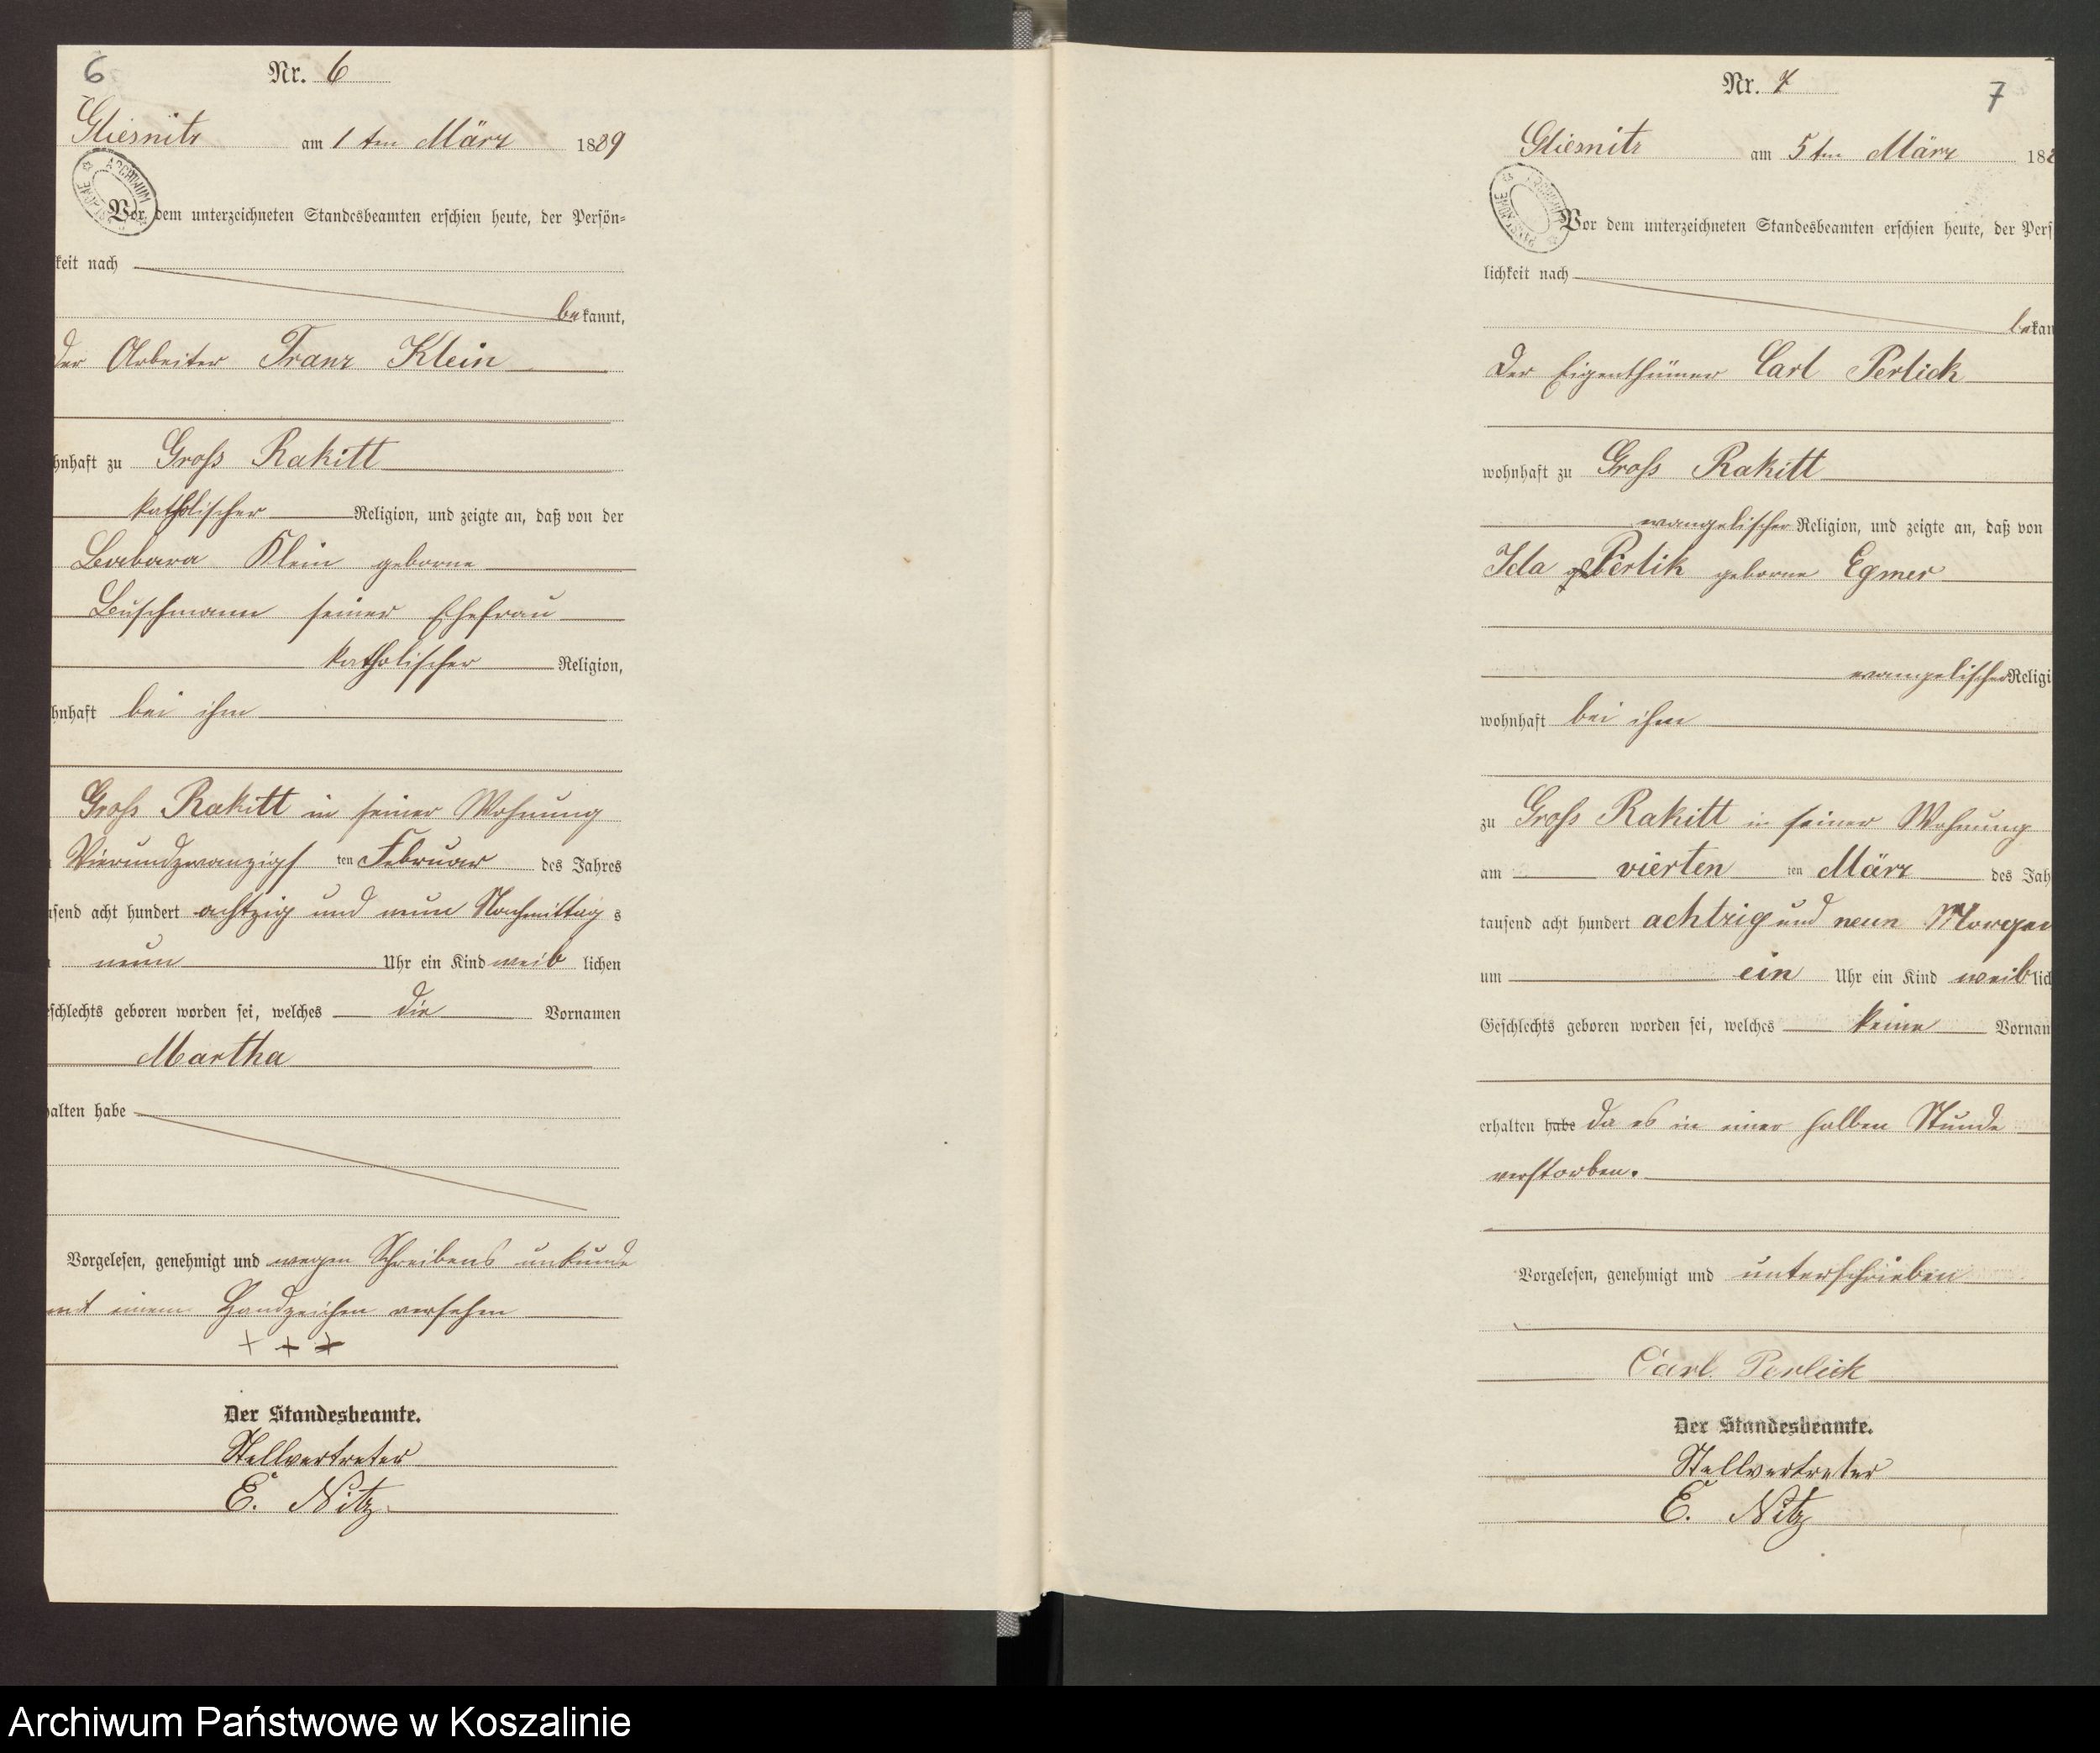 6
Nr. 6
Gliesnitz am 1 ten März 1889
ARCHIWUM
Vor dem unterzeichneten Standesbeamten erschien heute, der Persön=
keit nach
bekannt,
der Arbeiter Franz Klein
hnhaft zu Groß Rakitt
katholischer Religion, und zeigte an, daß von der
Barbara Klein geborne
Buschmann seiner Ehefrau
katholischer Religion,
hnhaft bei ihm
Groß Rakitt in seiner Wohnung
Vierundzwanzigst ten Februar des Jahres
usend acht hundert achtzig und neun Nachmittag s
neun Uhr ein Kind weib lichen
eschlechts geboren worden sei, welches die Vornamen
Martha
halten habe
Vorgelesen, genehmigt und wegen Schreibens unkunde
mit einem Handzeichen versehen
+ + +
Der Standesbeamte.
Stellvertreter
E. Nitz.
Nr. 7
7
Gliesnitz am 5 ten März 188
Vor dem unterzeichneten Standesbeamten erschien heute, der Pers
lichkeit nach
bekan
Der Eigenthümer Carl Perlick
wohnhaft zu Groß Rakitt
evangelischer Religion, und zeigte an, daß von
Ida Perlik geborne Egmer
evangelischer Religi
wohnhaft bei ihm
zu Groß Rakitt in seiner Wohnung
am vierten ten März des Jah
tausend acht hundert achtzig und neun Morgen
um ein Uhr ein Kind weiblich
Geschlechts geboren worden sei, welches keine Vornam
erhalten habe da es in einer halben Stunde
verstorben.
Vorgelesen, genehmigt und unterschrieben
Carl Perlick
Der Standesbeamte.
Stellvertreter
E. Nitz
Archiwum Państwowe w Koszalinie